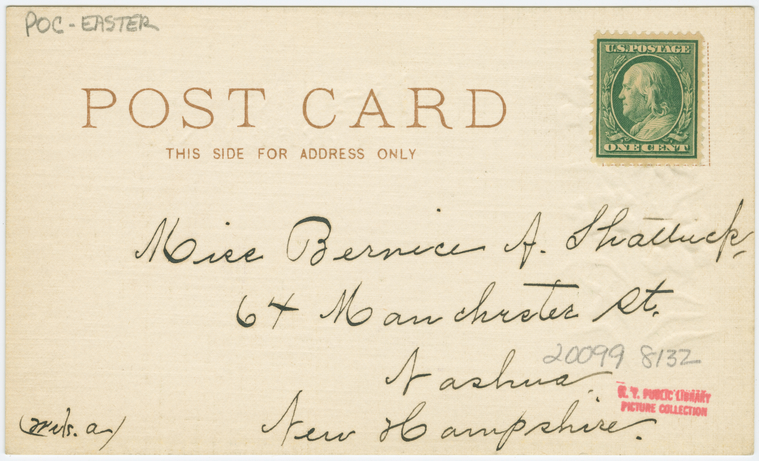 POC-EASTER
U.S. POSTAGE
ONE CENT
POST CARD
THIS SIDE FOR ADDRESS ONLY
Miss Bernice A. Shattuck,
64 Manchester St.
20099 8132
Nashua
N. Y. PUBLIC LIBRARY
PICTURE COLLECTION
New Hampshire.